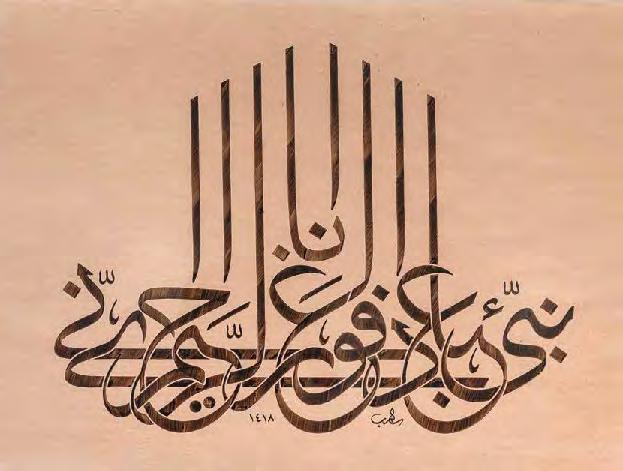 نبّئ عبادي أنّي أنا الغفور الرّحيم
١٤١٨